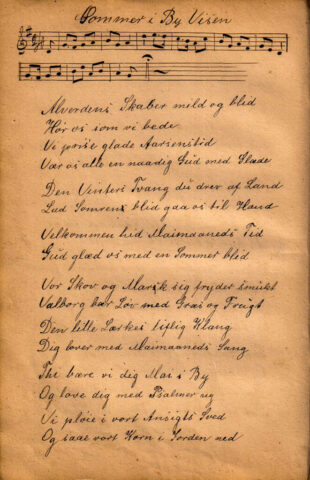 Sommer i By Visen
Alverdens Skaber mild og blid
Hør os som vi bede
Vi prise glade Aarsenstid
Vær os alle en naadig Gud med Glæde
Den Vinters Tvang du drev af Land
Lad Somren blid gaa os til Haand
Velkommen hid Maimaaneds Tid
Gud glæd os med en Sommer blid
Vor Skov og Mark sig fryder smukt
Valborg bær Løv med Græs og Frugt
Den lille Lærkes liflig Klang
Dig lover med Maimaaneds Sang
Thi bære vi dig Mai i By
Og love dig med Psalmer ny
Vi pløie i vort Ansigts Sved
Og saae vort Korn i Jorden ned